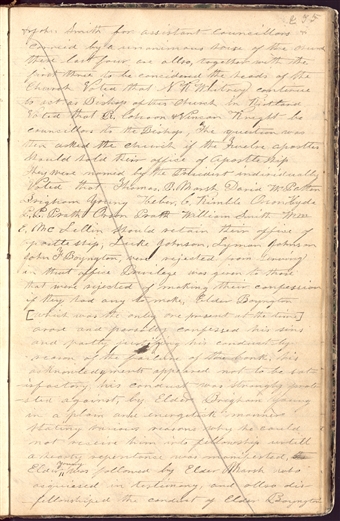 635
John Smith for assistant Councillors
carried by a unanimous voice of the church
these last four are also, together with the
first three to be concidered the heads of the
Church Voted that N K Whitney continue
to act as Bishop of the Church in Kirtland
Voted that R. Cahoon & Vinson Knight be
councillors to the Bishop, The question was
then asked the church if the Twelve apostles
should hold their office of apostleship
they were named by the President individually
Voted that Thomas B. Marsh David W. Patten
Brigham Young Heber C. Kimble Orson Hyde
P. Pratt Orson Pratt William Smith Wm
E. McLellin should retain their office of
apostleship, Luke Johnson, Lyman Johnson
John F. Boyngton, were rejected from
in that office Privilege was given to those
that were rejected of making their confession
if they had any to make, Elder Boyngton
[which was the only one present at the time]
arose and partly confessed his sin
and partly justifying his conduct by
reason of the failure of the bank, his
acknowledgments appeared not to be satis
factory his conduct was strongly protes
ted against by Elder Brigham Young
in a plain and energetick manner
stating various reasons why he could
not receive him into fellowship untill
a hearty repentance was manifested,
Elder was followed by Elder Marsh who
acquiesced in testimony, and also dis
fellowshiped the conduct of Elder Boyngton